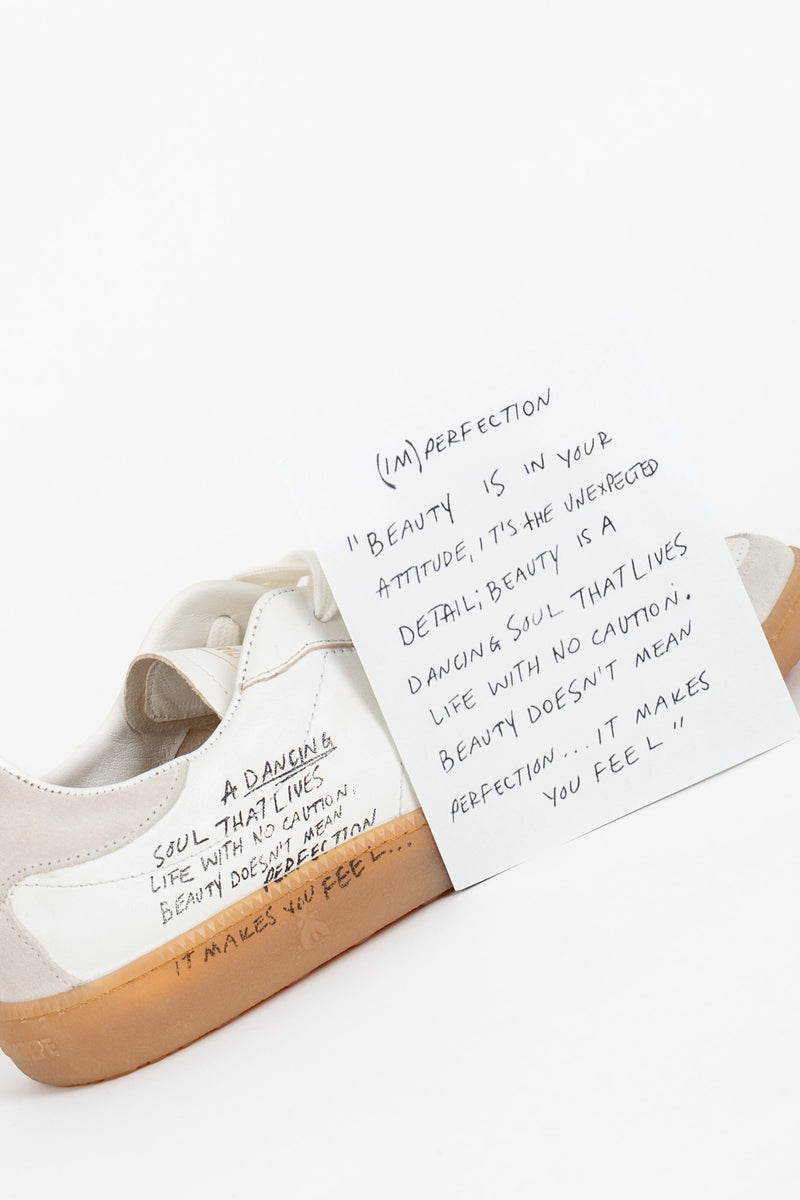 (IM)PERFECTION
"BEAUTY IS IN YOUR
ATTITUDE, IT'S THE UNEXPECTED
DETAIL; BEAUTY IS A
DANCING SOUL THAT LIVES
LIFE WITH NO CAUTION.
BEAUTY DOESN'T MEAN
PERFECTION... IT MAKES
YOU FEEL"
A DANCING
SOUL THAT LIVES
LIFE WITH NO CAUTION.
BEAUTY DOESN'T MEAN
PERFECTION
IT MAKES YOU FEEL...